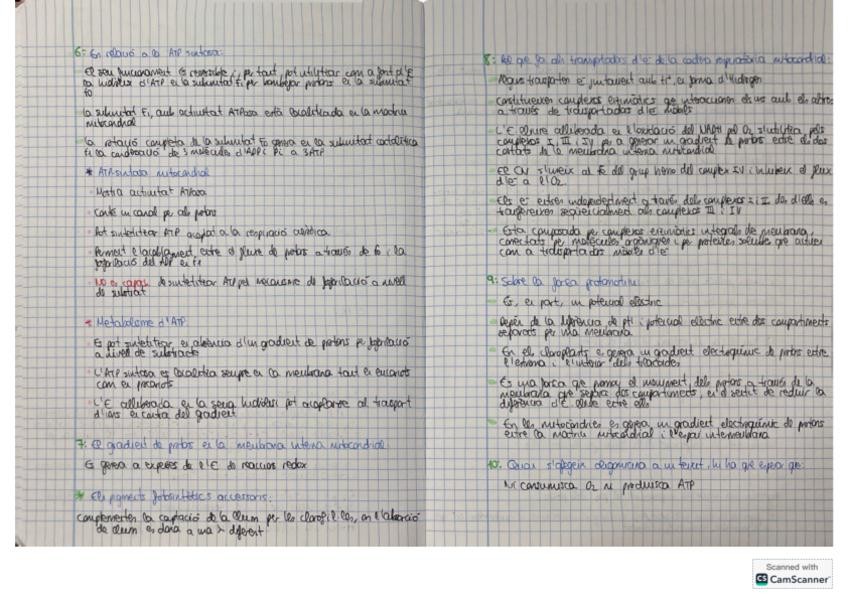 6: En relació a la ATP sintasa:
El seu funcionament és reversible i, per tant, pot utilitzar com a font d'E
la hidròlisi d'ATP en la subunitat F1 per bombejar protons en la subunitat
F0
La subunitat F1, amb activitat ATPasa està localitzada en la matriu
mitocondrial
La rotació completa de la subunitat F0 genera en la subunitat catalítica
F1 la condensació de 3 molècules d'ADP i Pi a 3 ATP
* ATP-sintasa mitocondrial
Mostra activitat ATPasa
Conté un canal per als protons
Pot sintetitzar ATP acoplat a la respiració
Permet l'acoblament entre el flux de protons a través de F0 i la
fosforilació del ADP en F1
NO es capaç de sintetitzar ATP per mecanisme de fosforilació a nivell
de substrat
* Metabolisme d'ATP
Es pot sintetitzar en absència d'un gradient de protons per fosforilació
a nivell de substracte
L'ATP sintasa es localitza sempre en la membrana tant en eucariots
com en procariots
L'E alliberada en la seua hidròlisi pot acoplarse al transport
d'ions en contra del gradient
7: El gradient de protons en la membrana interna mitocondrial:
Es genera a expenses de l'E de reaccions redox
* Els pigments fotosintètics accessoris:
Complementen la captació de la llum per les clorofil·les, en l'absorció
de llum es dona a una λ diferent
8: Pel que fa als transportadors d'e- de la cadena respiratòria mitocondrial:
Alguns transporten e- juntament amb H+, en forma d'hidrogen
Constitueixen complexos enzimàtics que interaccionen els uns amb els altres
a través de transportadors d'e- mòbils
L'E lliure alliberada en l'oxidació del NADH pel O2 s'utilitza, pels
complexos I, III i IV per a generar un gradient de protons entre els dos
costats de la membrana interna mitocondrial
El CN- s'uneix al Fe del grup hemo del complex IV i inhibeix el flux
d'e- a l'O2
Els e- entren independentment a través dels complexos I i II des d'ells es
transfereixen seqüencialment als complexos III i IV
Està composada per complexos enzimàtics integrals de membrana,
conectats per molècules orgàniques i per proteïnes solubles que actuen
com a transportadors mòbils d'e-
9: Sobre la força protomotriu:
És, en part, un potencial elèctric
Depèn de la diferència de pH i potencial elèctric entre dos compartiments
separats per una membrana
En els cloroplasts es genera un gradient electroquímic de protons entre
l'estroma i l'interior dels tilacoides
És una força que promou el moviment dels protons a través de la
membrana que separa dos compartiments, en el sentit de reduir la
diferència d'E lliure entre ells
En les mitocòndries es genera un gradient electroquímic de protons
entre la matriu mitocondrial i l'espai intermembrana
10. Quan s'afegeix oligomicina a un extret, hi ha que esperar que:
Ni consumisca O2 ni produisca ATP
Scanned with
CS CamScanner